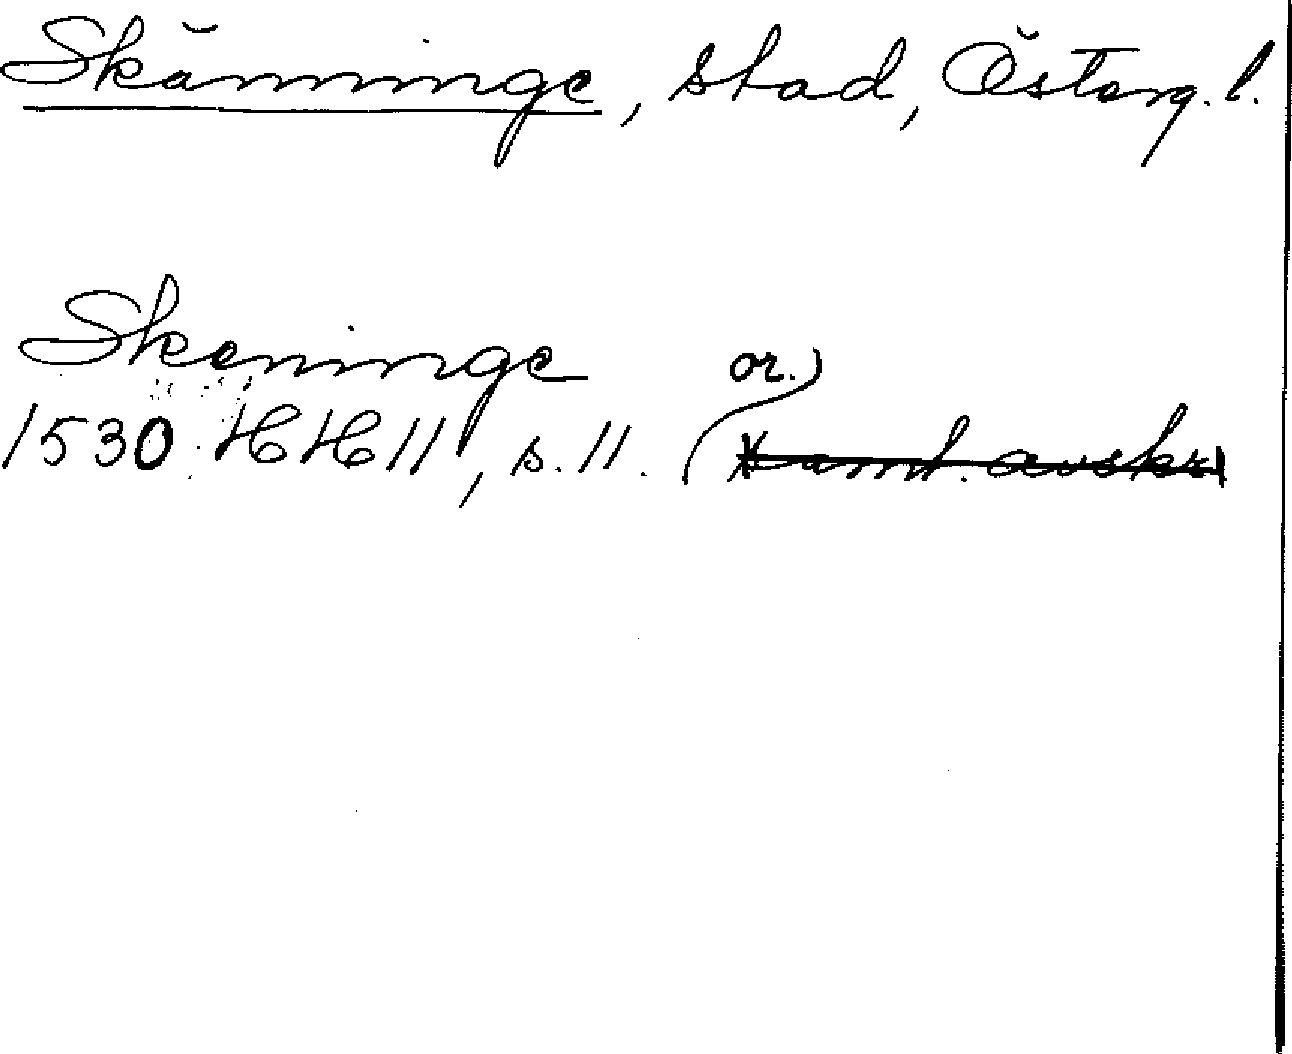 Skänninge, stad, Österg. l.
Skeninge
1530 HH 11, s. 11. (or.)
samt. avskr.